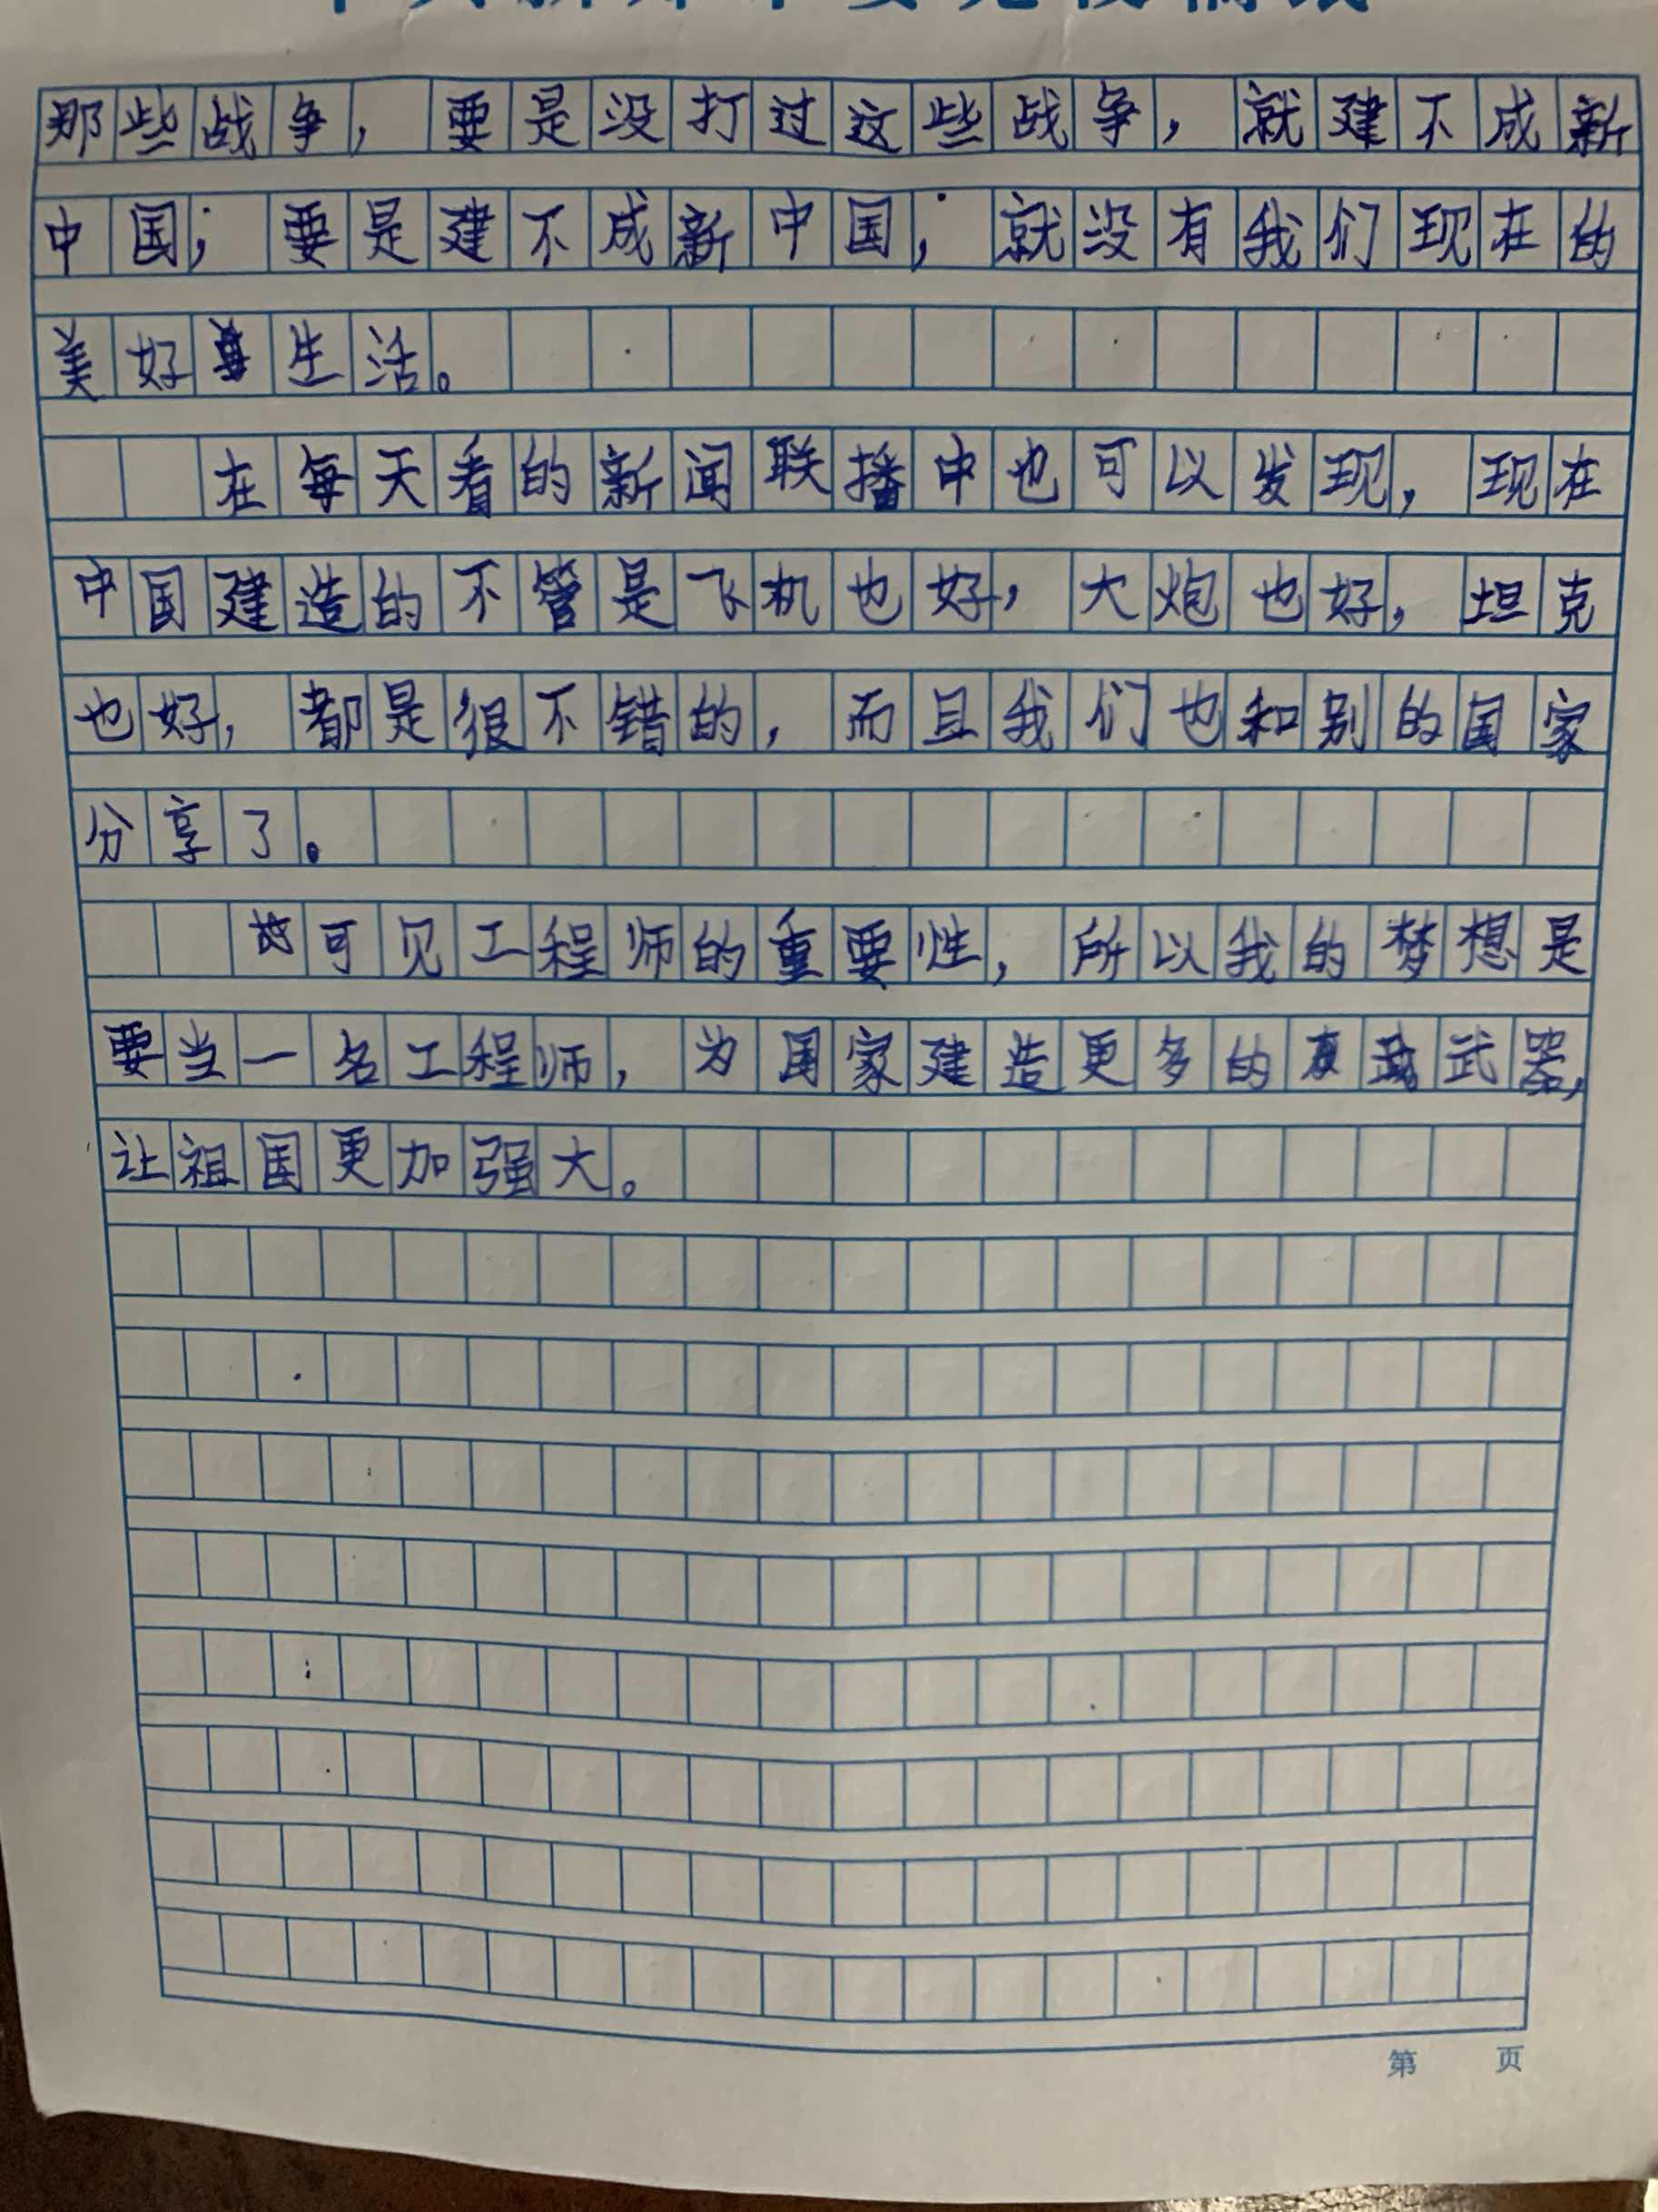 那些战争，要是没打过这些战争，就建不成新
中国；要是建不成新中国；就没有我们现在的
美好生活。
在每天看的新闻联播中也可以发现，现在
中国建造的不管是飞机也好，大炮也好，坦克
也好，都是很不错的，而且我们也和别的国家
分享了。
可见工程师的重要性，所以我的梦想是
要当一名工程师，为国家建造更多的武器，
让祖国更加强大。
第 页